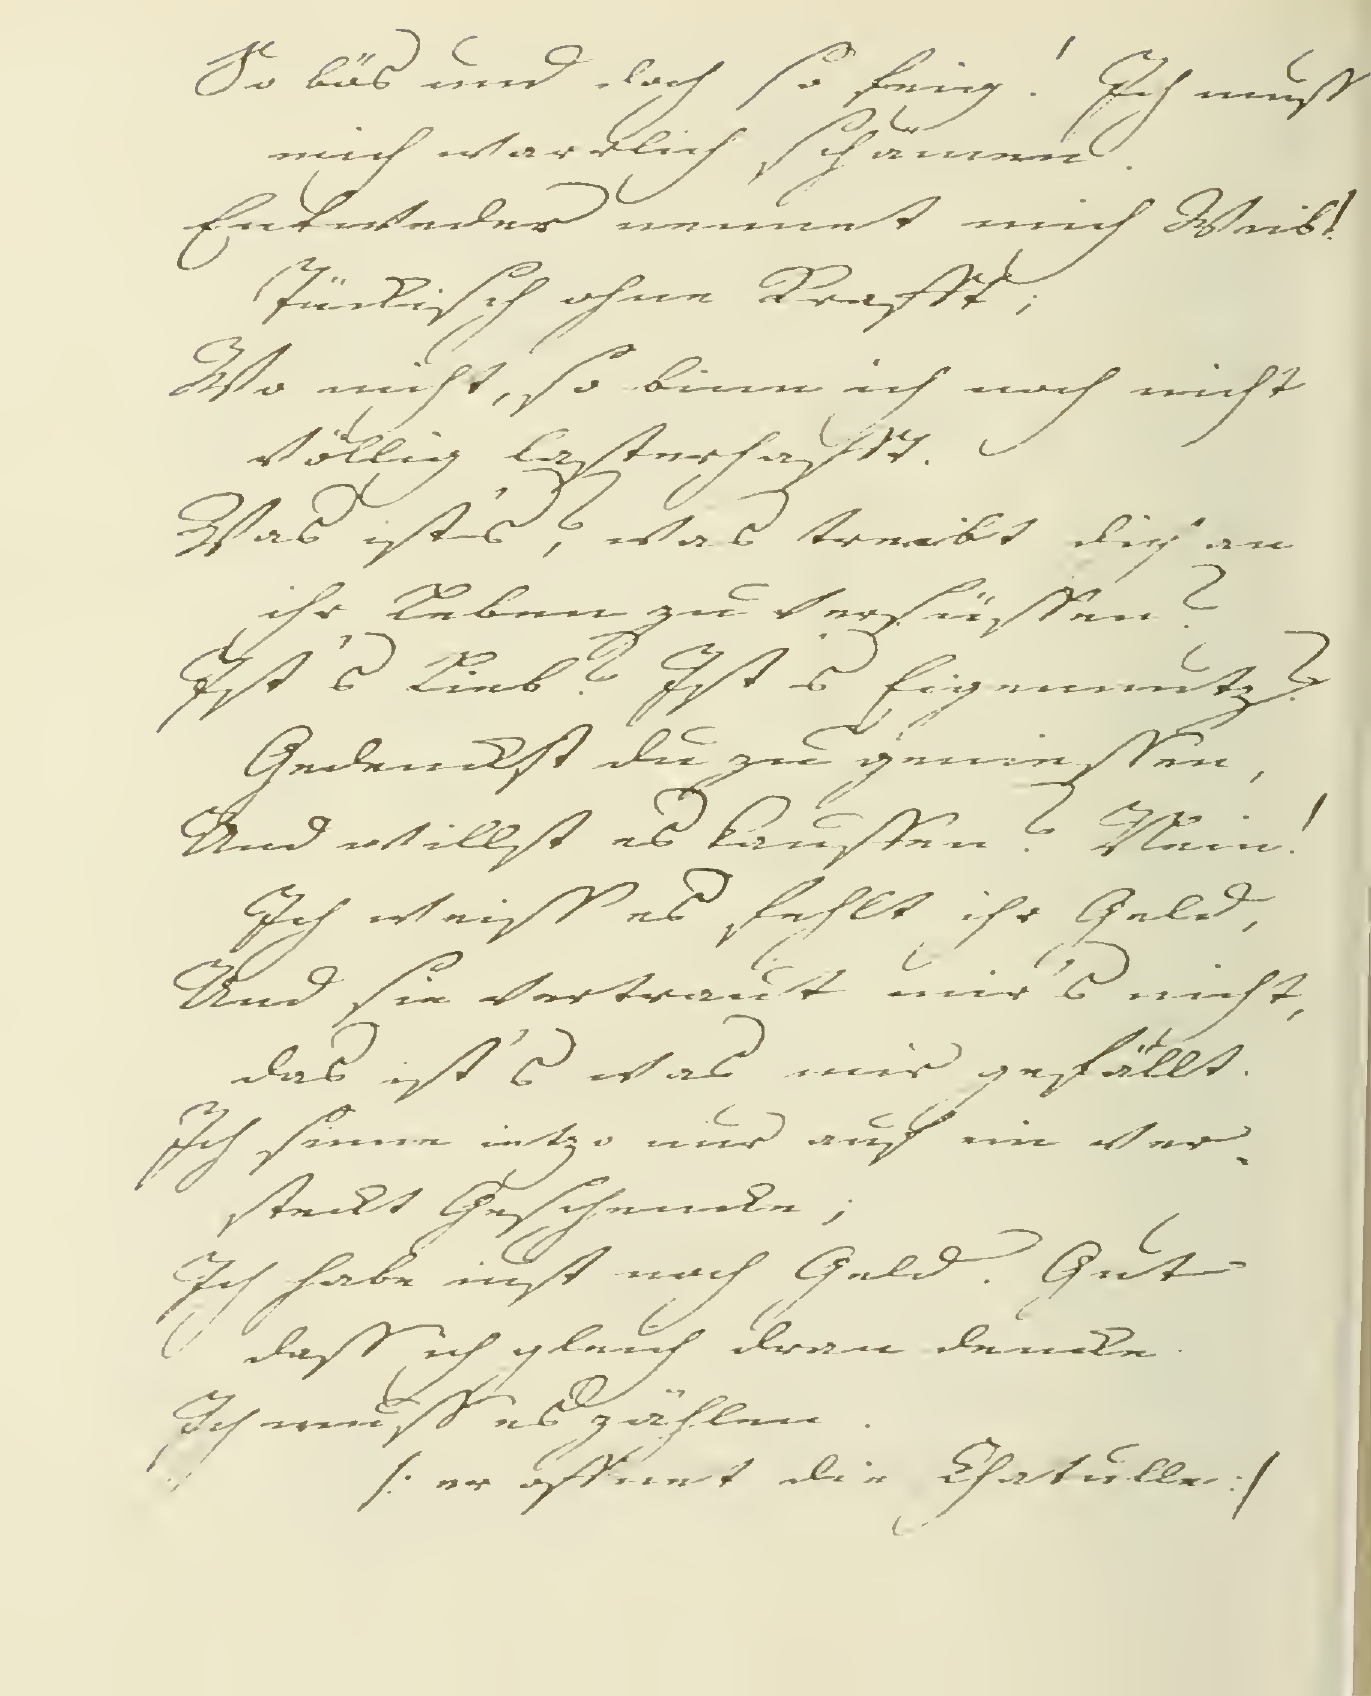 So bös und doch so feig! Ich muss
mich warrlich schämen.
Entweder nennet mich Weib!
Tückisch ohne Krafft;
Wo nicht, so binn ich noch nicht
völlig lasterhafft.
Was ist's, was treibt dich an
ihr Leben zu versüssen?
Ist's Lieb? Ist's Eigennutz?
Gedenckst du zu geniessen,
Und willst es kauffen? Nein!
Ich weiss es fehlt ihr Geld,
Und sie vertraut mir's nicht,
das ist's was mir gefällt.
Ich sinne ietzo nur auf ein ver-
steckt Geschencke;
Ich habe iust noch Geld. Gut
dass ich gleich dran dencke.
Ich muss es zählen.
/: er öffnet die Chatulle :/